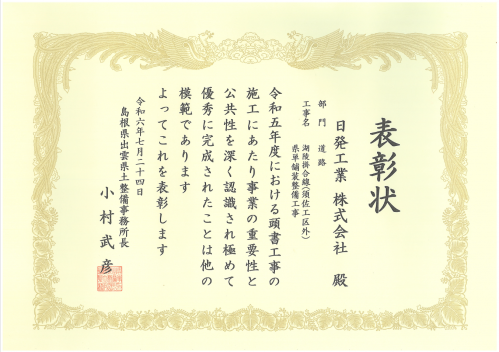 表彰状
日発工業 株式会社 殿
部門 道路
工事名 湖陵掛合線(須佐工区外)
県単舗装整備工事
令和五年度における頭書工事の
施工にあたり事業の重要性と
公共性を深く認識され極めて
優秀に完成されたことは他の
模範であります
よってこれを表彰します
令和六年七月二十四日
島根県出雲県土整備事務所長
小村武彦